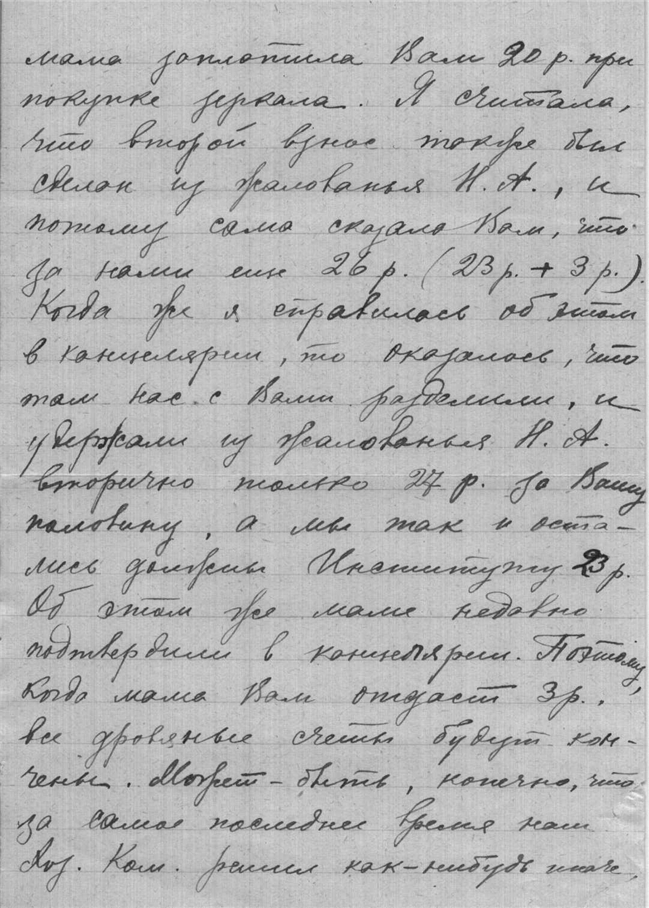 мама заплатила Вам 20 р. при
покупке зеркала. Я считала,
что второй взнос также был
сделан из жалованья Н. А., и
потому сама сказала Вам, что
за нами еще 26 р. (23 р. + 3 р.).
Когда же я справилась об этом
в канцелярии, то оказалось, что
там нас с Вами разделили, и
удержали из жалованья Н. А.
вторично только 27 р. за Вашу
половину, а мы так и оста-
лись должны Институту 23 р.
Об этом же маме недавно
подтвердили в канцелярии. Поэтому,
когда мама Вам отдаст 3 р.,
все дровяные счеты будут кон-
чены. Может-быть, конечно, что
за самое последнее время наш
Хоз. Ком. решил как-нибудь иначе,